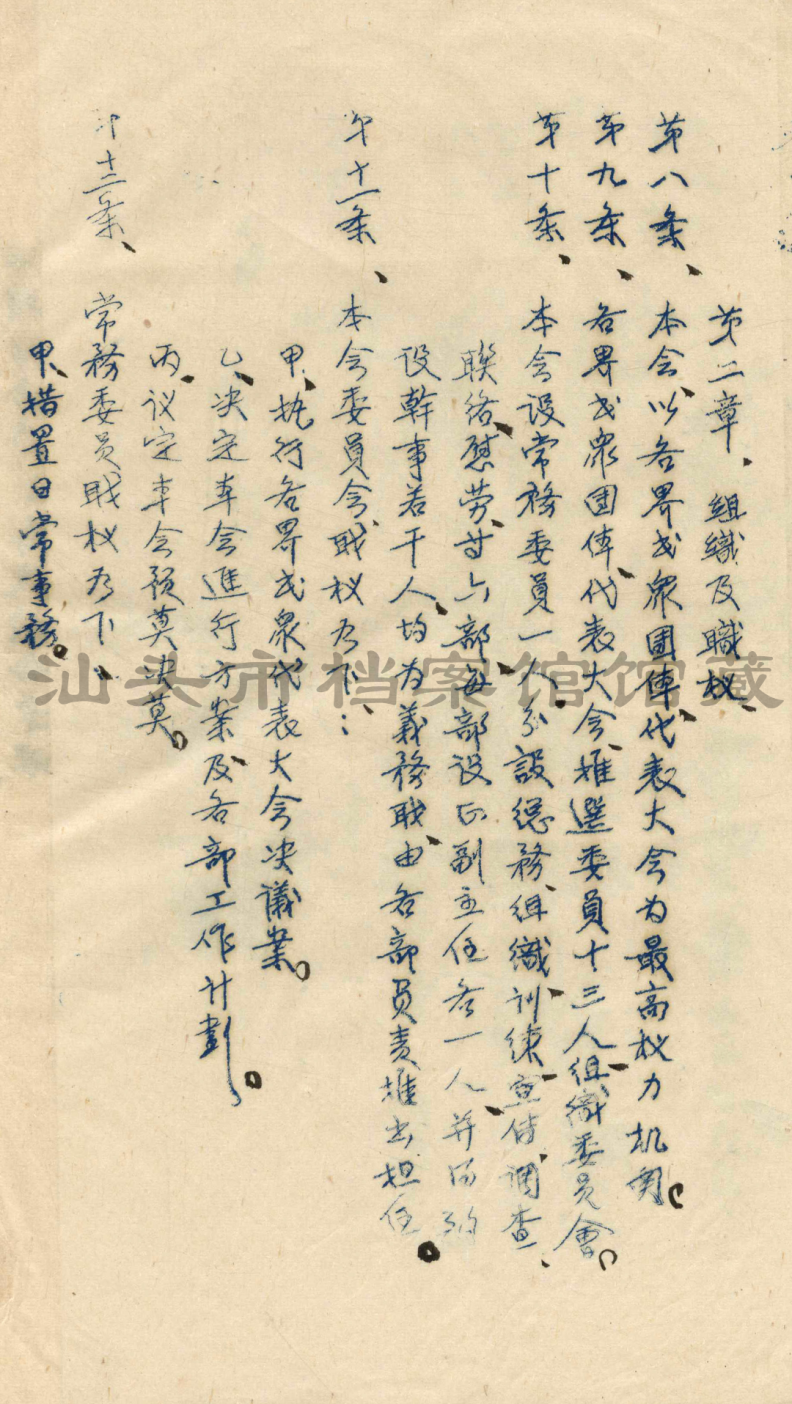 第二章、组織及職权、
第八条、本会以各界民眾团体代表大会为最高权力机関。
第九条、各界民眾团体代表大会推選委員十三人组織委员會。
第十条、本会设常務委員一人分設總務、组織、训練、宣传、调查、
聯络、慰劳、廿六部、每部设正副主任各一人、并得
设幹事若干人、均为義務职、由各部员责推出担任。
第十一条、本会委員会职权为下、：
甲、执行各界民眾代表大会决議案。
乙、决定本会進行方案及各部工作计劃。
丙、议定本会预算决算。
第十二条、常務委员职权为下、：
甲、措置日常事務。
汕头市档案馆馆藏